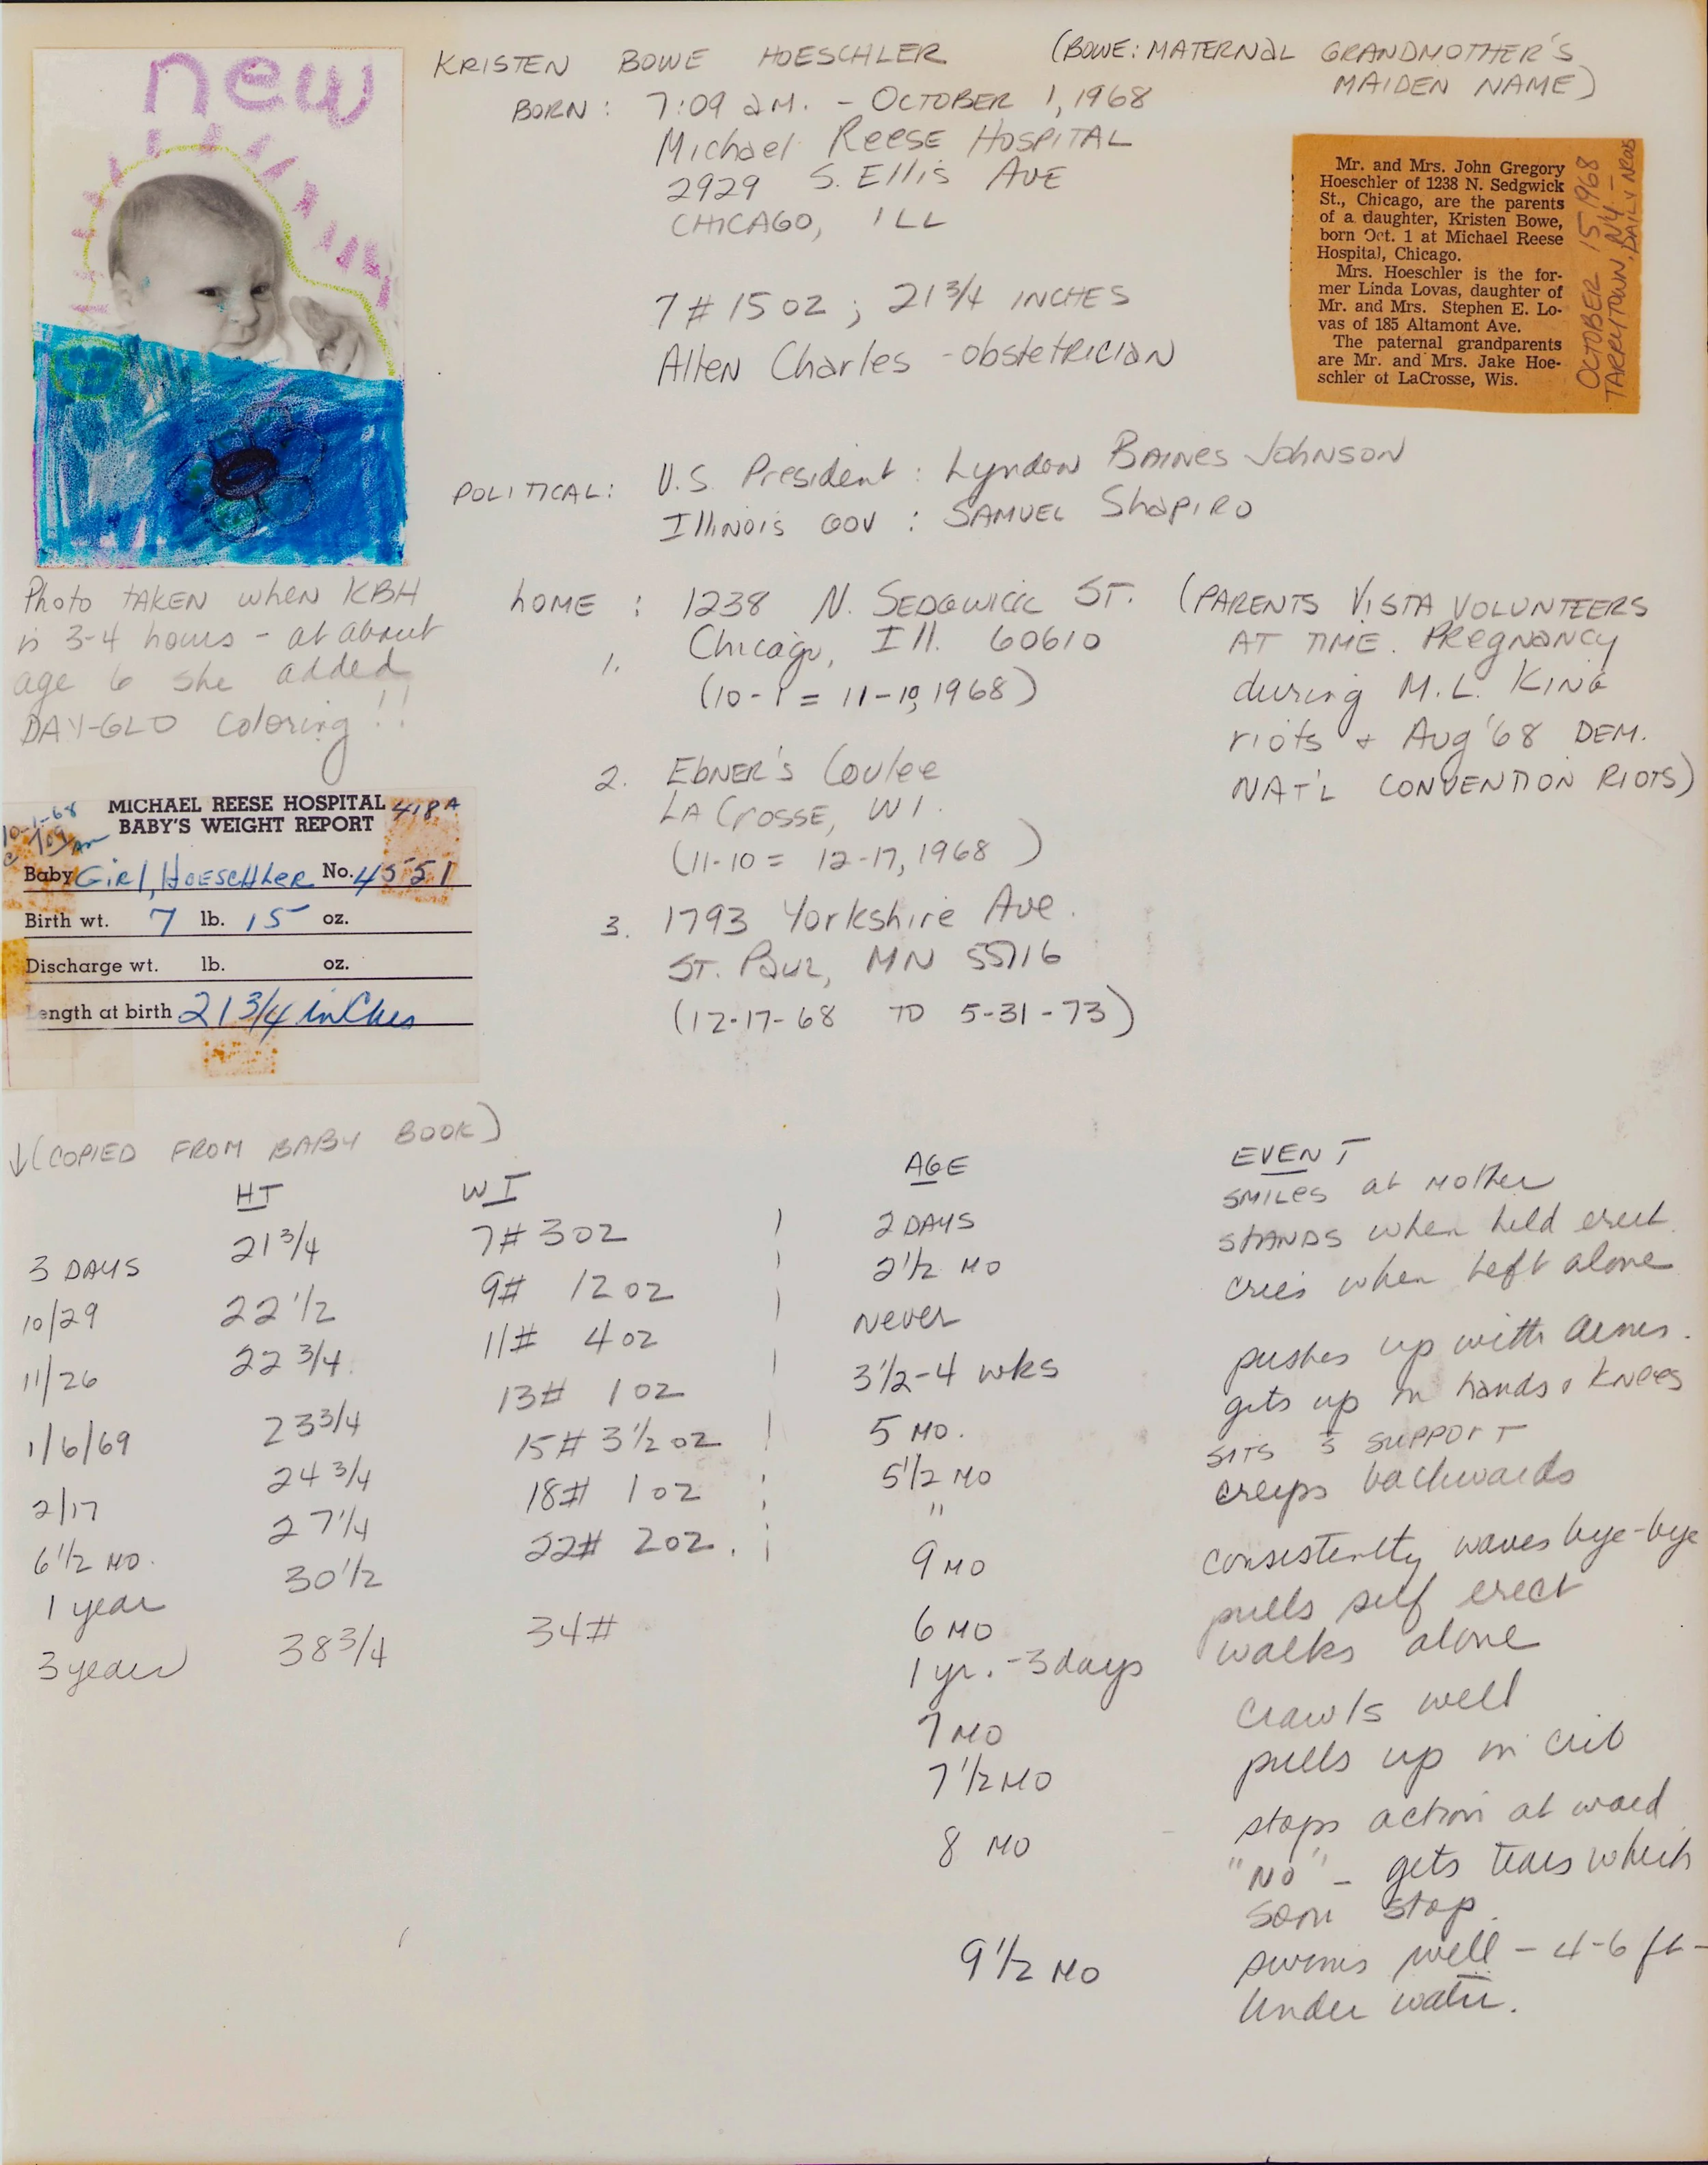 new
KRISTEN BOWE HOESCHLER (BOWE: MATERNAL GRANDMOTHER'S
MAIDEN NAME)
BORN: 7:09 AM. - OCTOBER 1, 1968
Michael Reese HOSPITAL
2929 S. Ellis AVE
CHICAGO, ILL
7 # 15 OZ ; 21 3/4 INCHES
Allen Charles - obstetrician
Mr. and Mrs. John Gregory
Hoeschler of 1238 N. Sedgwick
St., Chicago, are the parents
of a daughter, Kristen Bowe,
born Oct. 1 at Michael Reese
Hospital, Chicago.
Mrs. Hoeschler is the for-
mer Linda Lovas, daughter of
Mr. and Mrs. Stephen E. Lo-
vas of 185 Altamont Ave.
The paternal grandparents
are Mr. and Mrs. Jake Hoe-
schler of LaCrosse, Wis.
OCTOBER 15, 1968
TARRYTOWN, N.Y. -
DAILY NEWS
POLITICAL: U.S. President : Lyndon BAINES JOHNSON
Illinois GOV : SAMUEL Shapiro
Photo TAKEN when KBH
is 3-4 hours - at about
age 6 she added
DAY-GLO coloring!!
HOME : 1238 N. SEDGWICK ST.
1. Chicago, Ill. 60610
(10-1 = 11-10, 1968)
(PARENTS VISTA VOLUNTEERS
AT TIME. PREGNANCY
during M.L. KING
riots + Aug '68 DEM.
NAT'L CONVENTION RIOTS)
2. EBNER'S Coulee
LA CROSSE, WI.
(11-10 = 12-17, 1968)
3. 1793 Yorkshire Ave.
ST. PAUL, MN 55116
(12-17-68 TO 5-31-73)
10-1-68
@ 709 AM
MICHAEL REESE HOSPITAL 418A
BABY'S WEIGHT REPORT
Baby Girl, HOESCHLER No. 4551
Birth wt. 7 lb. 15 oz.
Discharge wt. lb. oz.
Length at birth 21 3/4 inches
↓ (COPIED FROM BABY BOOK)
HT WT
3 DAYS 21 3/4 7# 3 OZ
10/29 22 1/2 9# 12 OZ
11/26 22 3/4 11# 4 OZ
1/6/69 23 3/4 13# 1 OZ
2/17 24 3/4 15# 3 1/2 OZ
6 1/2 MO. 27 1/4 18# 1 OZ
1 year 30 1/2 22# 2 OZ.
3 years 38 3/4 34#
AGE EVENT
2 DAYS SMILES at MOTHER
2 1/2 MO STANDS when held erect
Never cries when left alone
3 1/2-4 wks pushes up with arms.
5 MO. gets up on hands & knees
5 1/2 MO SITS s̄ SUPPORT
" creeps backwards
9 MO consistently waves bye-bye
6 MO pulls self erect
1 yr. - 3 days walks alone
7 MO crawls well
7 1/2 MO pulls up in crib
8 MO stops action at word
"NO" - gets tears which
soon stop.
9 1/2 MO swims well - 4-6 ft -
under water.